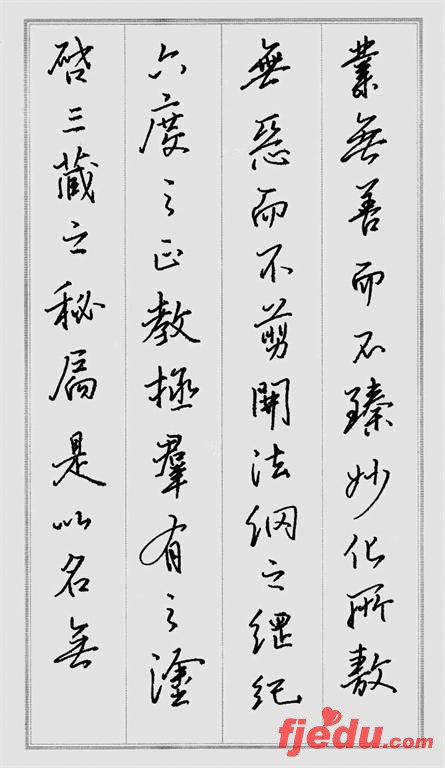 業無善而不臻妙化所敷
無惡而不翦開法網之綱紀
六度之正教拯羣有之塗
啓三藏之秘扃是以名無
fjedu.com